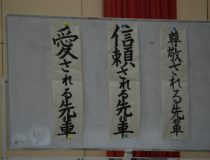 尊敬される先輩
信頼される先輩
愛される先輩